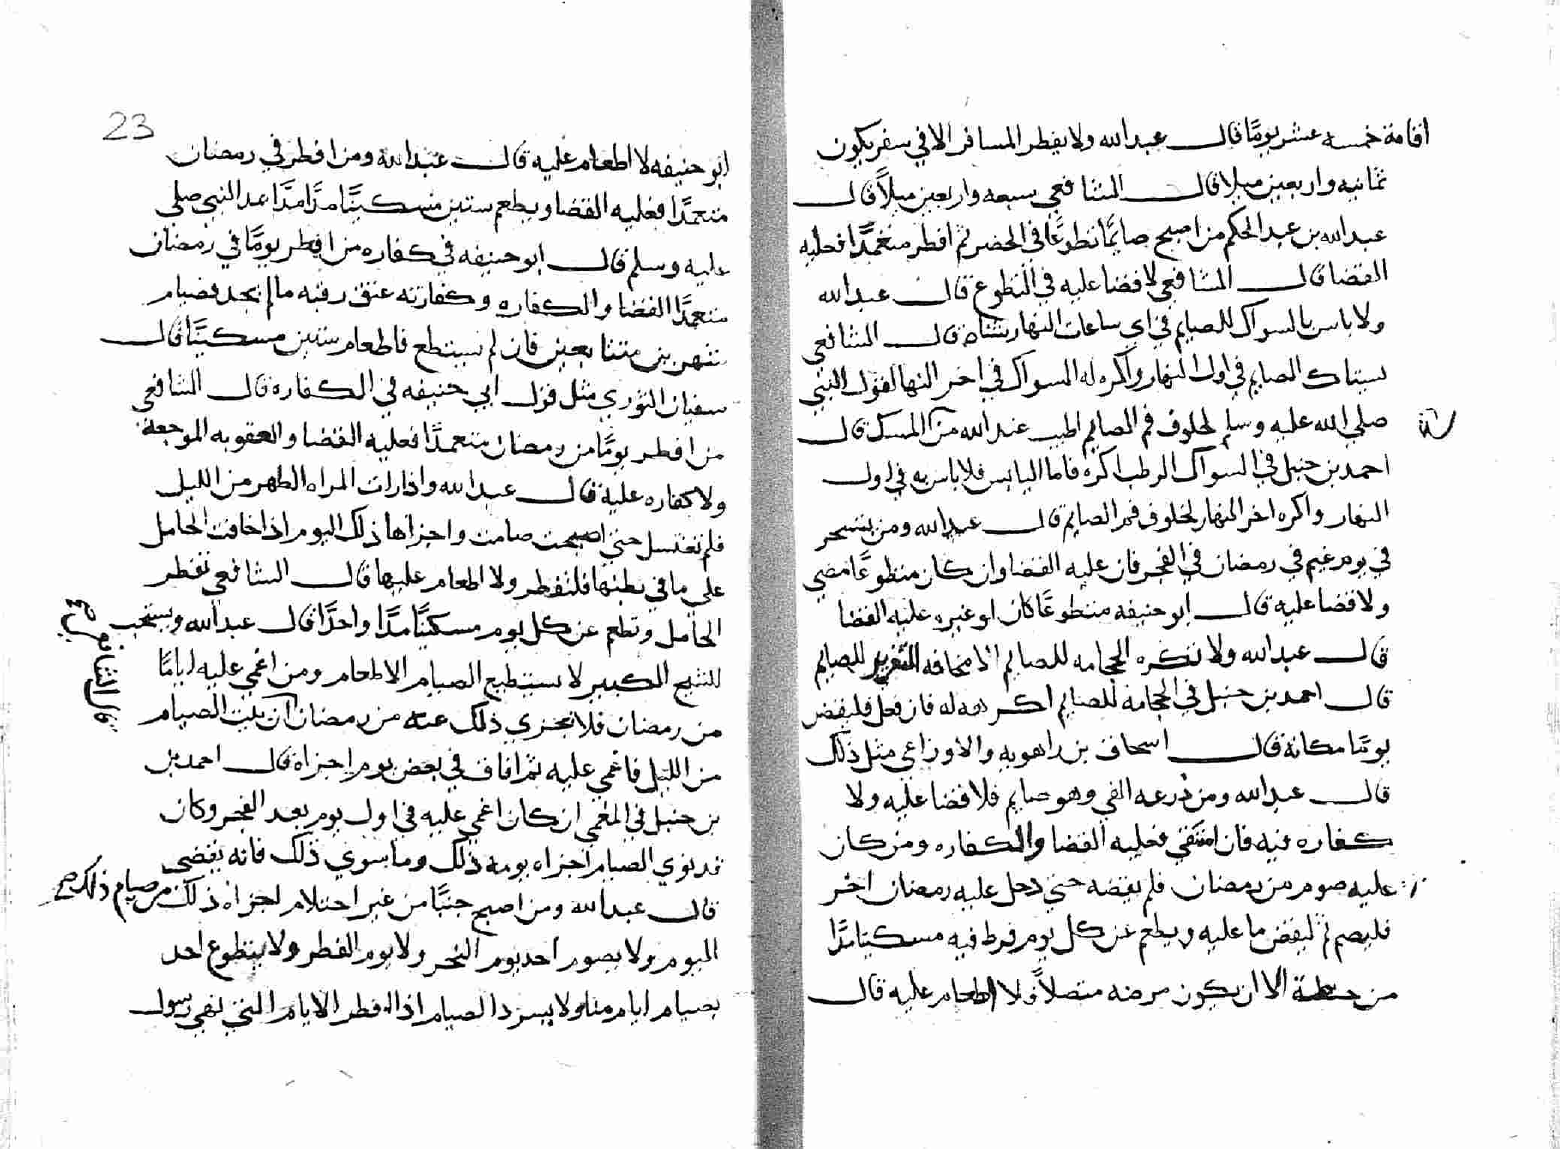 اقامة خمسه عشر يومًا قال عبد الله ولا يفطر المسافر الا في سفر يكون
ثمانيه واربعين ميلا قال الشافعي سبعه واربعين ميلاً قال
عبد الله بن عبد الحكم من اصبح صايمًا تطوعًا في الحضر ثم افطر متعمدًا فعليه
القضا قال الشافعي لا قضا عليه في التطوع قال عبد الله
ولا باس بالسواك للصايم في اي ساعات النهار شاء قال الشافعي
يستاك الصايم في اول النهار واكره له السواك في اخر النهار لقول النبي
صلي الله عليه وسلم لخلوف فم الصايم اطيب عند الله من المسك قال
احمد بن حنبل في السواك الرطب اكره فاما اليابس فلا باس به في اول
النهار واكره اخر النهار لخلوف فم الصايم قال عبد الله ومن تسحر
في يوم غيم في رمضان في الفجر فان عليه القضا وان كان متطوعًا مضي
ولا قضا عليه قال ابو حنيفه متطوعًا كان او غيره عليه القضا
قال عبد الله ولا نكره الحجامه للصايم الا مخافه التغرير للصايم
قال احمد بن حنبل في الحجامه للصايم اكرهه له فان فعل فليقض
يومًا مكانه قال اسحاق بن راهويه والاوزاعي مثل ذلك
قال عبد الله ومن ذرعه القي وهو صايم فلا قضا عليه ولا
كفاره فيه فان استقي فعليه القضا والكفاره ومن كان
عليه صوم من رمضان فلم يقضه حتي دخل عليه رمضان اخر
فليصم ثم ليقض ما عليه ويطعم عن كل يوم فرط فيه مسكينا مدًا
من حنطة الا ان يكون مرضه متصلاً ولا اطعام عليه قال
23
ابو حنيفه لا اطعام عليه قال عبد الله ومن افطر في رمضان
متعمدًا فعليه القضا ويطعم ستين مسكينًا مدًا مدًا بمد النبي صلي
عليه وسلم قال ابو حنيفه في كفاره من افطر يومًا في رمضان
متعمدًا القضا والكفاره وكفارته عتق رقبه ما لم يجد فصيام
شهرين متتابعين فان لم يستطع فاطعام ستين مسكينًا قال
سفيان الثوري مثل قول ابي حنيفه في الكفارة قال الشافعي
من افطر يومًا من رمضان متعمدًا فعليه القضا والعقوبه الموجعة
ولا كفاره عليه قال عبد الله واذا رات المراه الطهر من الليل
فلم تغتسل حتي اصبحت صامت واجزاها ذلك اليوم اذا خافت الحامل
علي ما في بطنها فلتفطر ولا اطعام عليها قال الشافعي تفطر
الحامل وتطعم عن كل يوم مسكينًا مدًا واحدًا قال عبد الله ويستحب
للشيخ الكبير لا يستطيع الصيام الاطعام ومن اغمي عليه ايامًا
قال الشافعي
من رمضان فلا تجزي ذلك عنه من رمضان ان بيت الصيام
من الليل فاغمي عليه ثم افاق في بعض يوم اجزاه قال احمد بن
بن حنبل في المغمي ان كان اغمي عليه في اول يوم بعد الفجر وكان
قد نوي الصيام اجزاه يومه ذلك وما سوي ذلك فانه يقضي
قال عبد الله ومن اصبح جنبًا من غير احتلام اجزاه ذلك من صيام ذلك صح
اليوم ولا يصوم احد يوم النحر ولا يوم الفطر ولا يتطوع احد
بصيام ايام مني ولا يسرد الصيام اذا افطر الايام التي نهي رسول